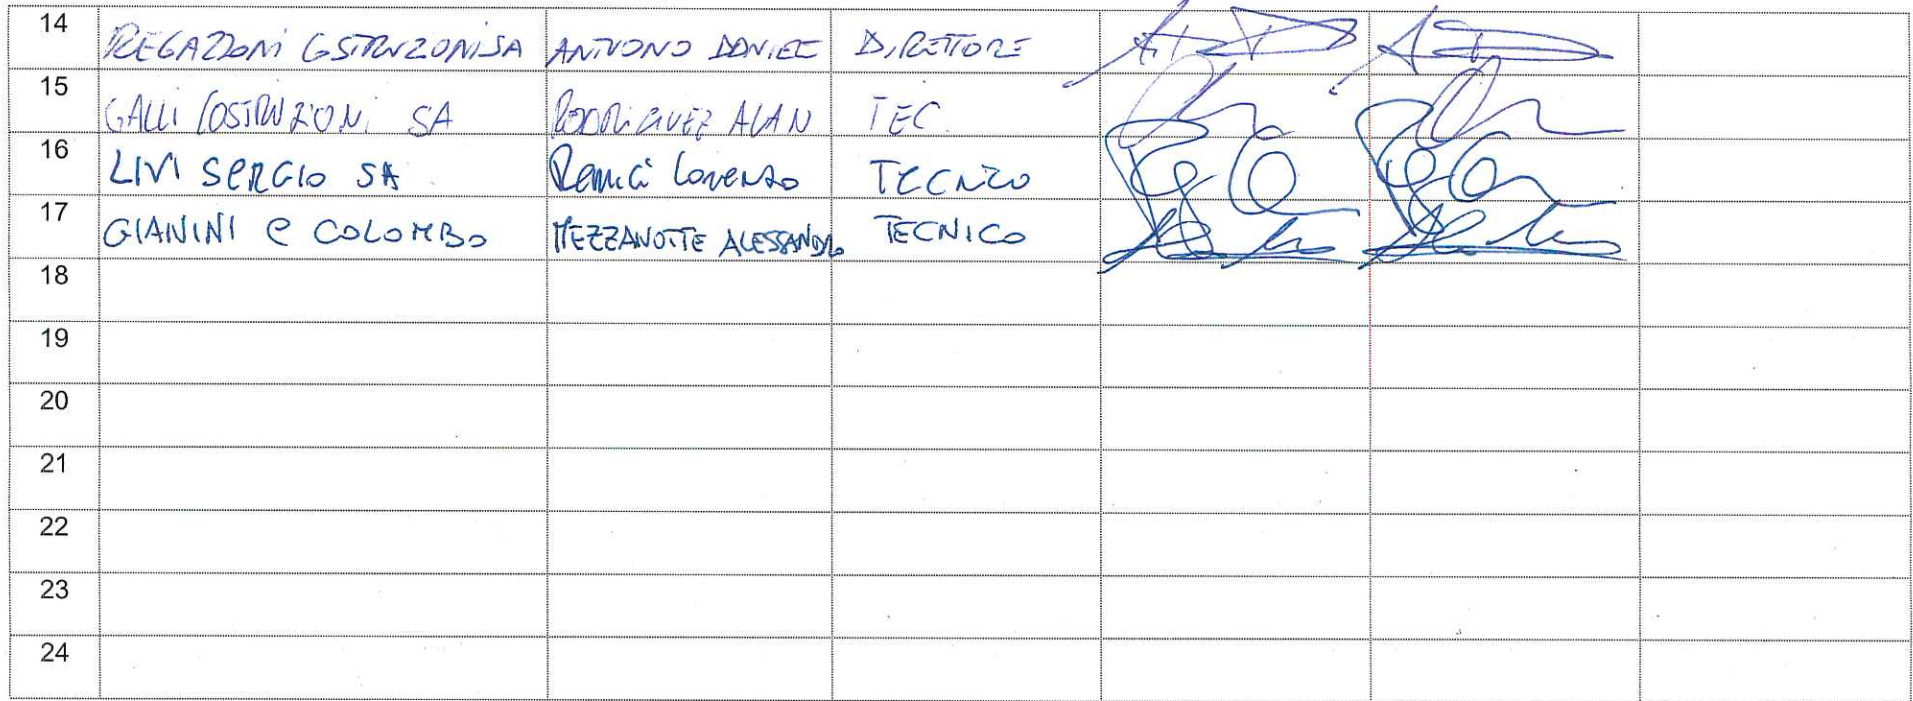 14 REGAZZONI COSTRUZIONI SA ANTUONO DANIELE DIRETTORE
15 GALLI COSTRUZIONI SA RODRIGUEZ ALAN TEC.
16 LIVI SERGIO SA Lorenzo TECNICO
17 GIANINI e COLOMBO MEZZANOTTE ALESSANDRO TECNICO
18
19
20
21
22
23
24